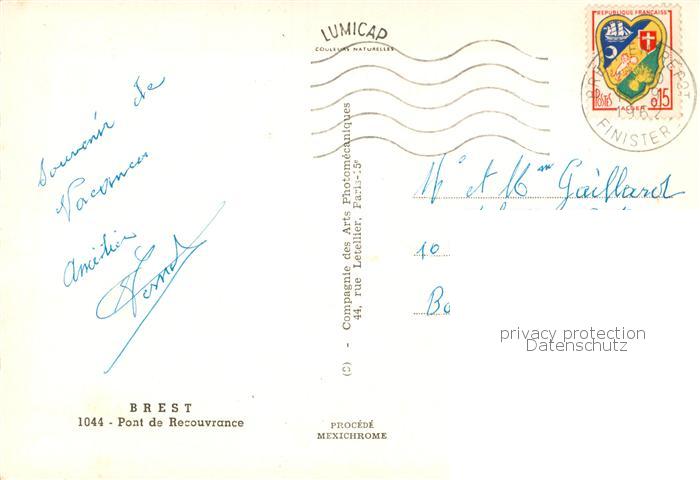 LUMICAP
COULEURS NATURELLES
REPUBLIQUE FRANÇAISE
POSTES
0,15
ALGER
1962
FINISTER
Souvenir de
Vacances
Amitiés
Mr et Mme Gaillard
10
Bo
(C) - Compagnie des Arts Photomécaniques
44, rue Letellier, Paris-15e
privacy protection
Datenschutz
BREST
1044 - Pont de Recouvrance
PROCÉDÉ
MEXICHROME